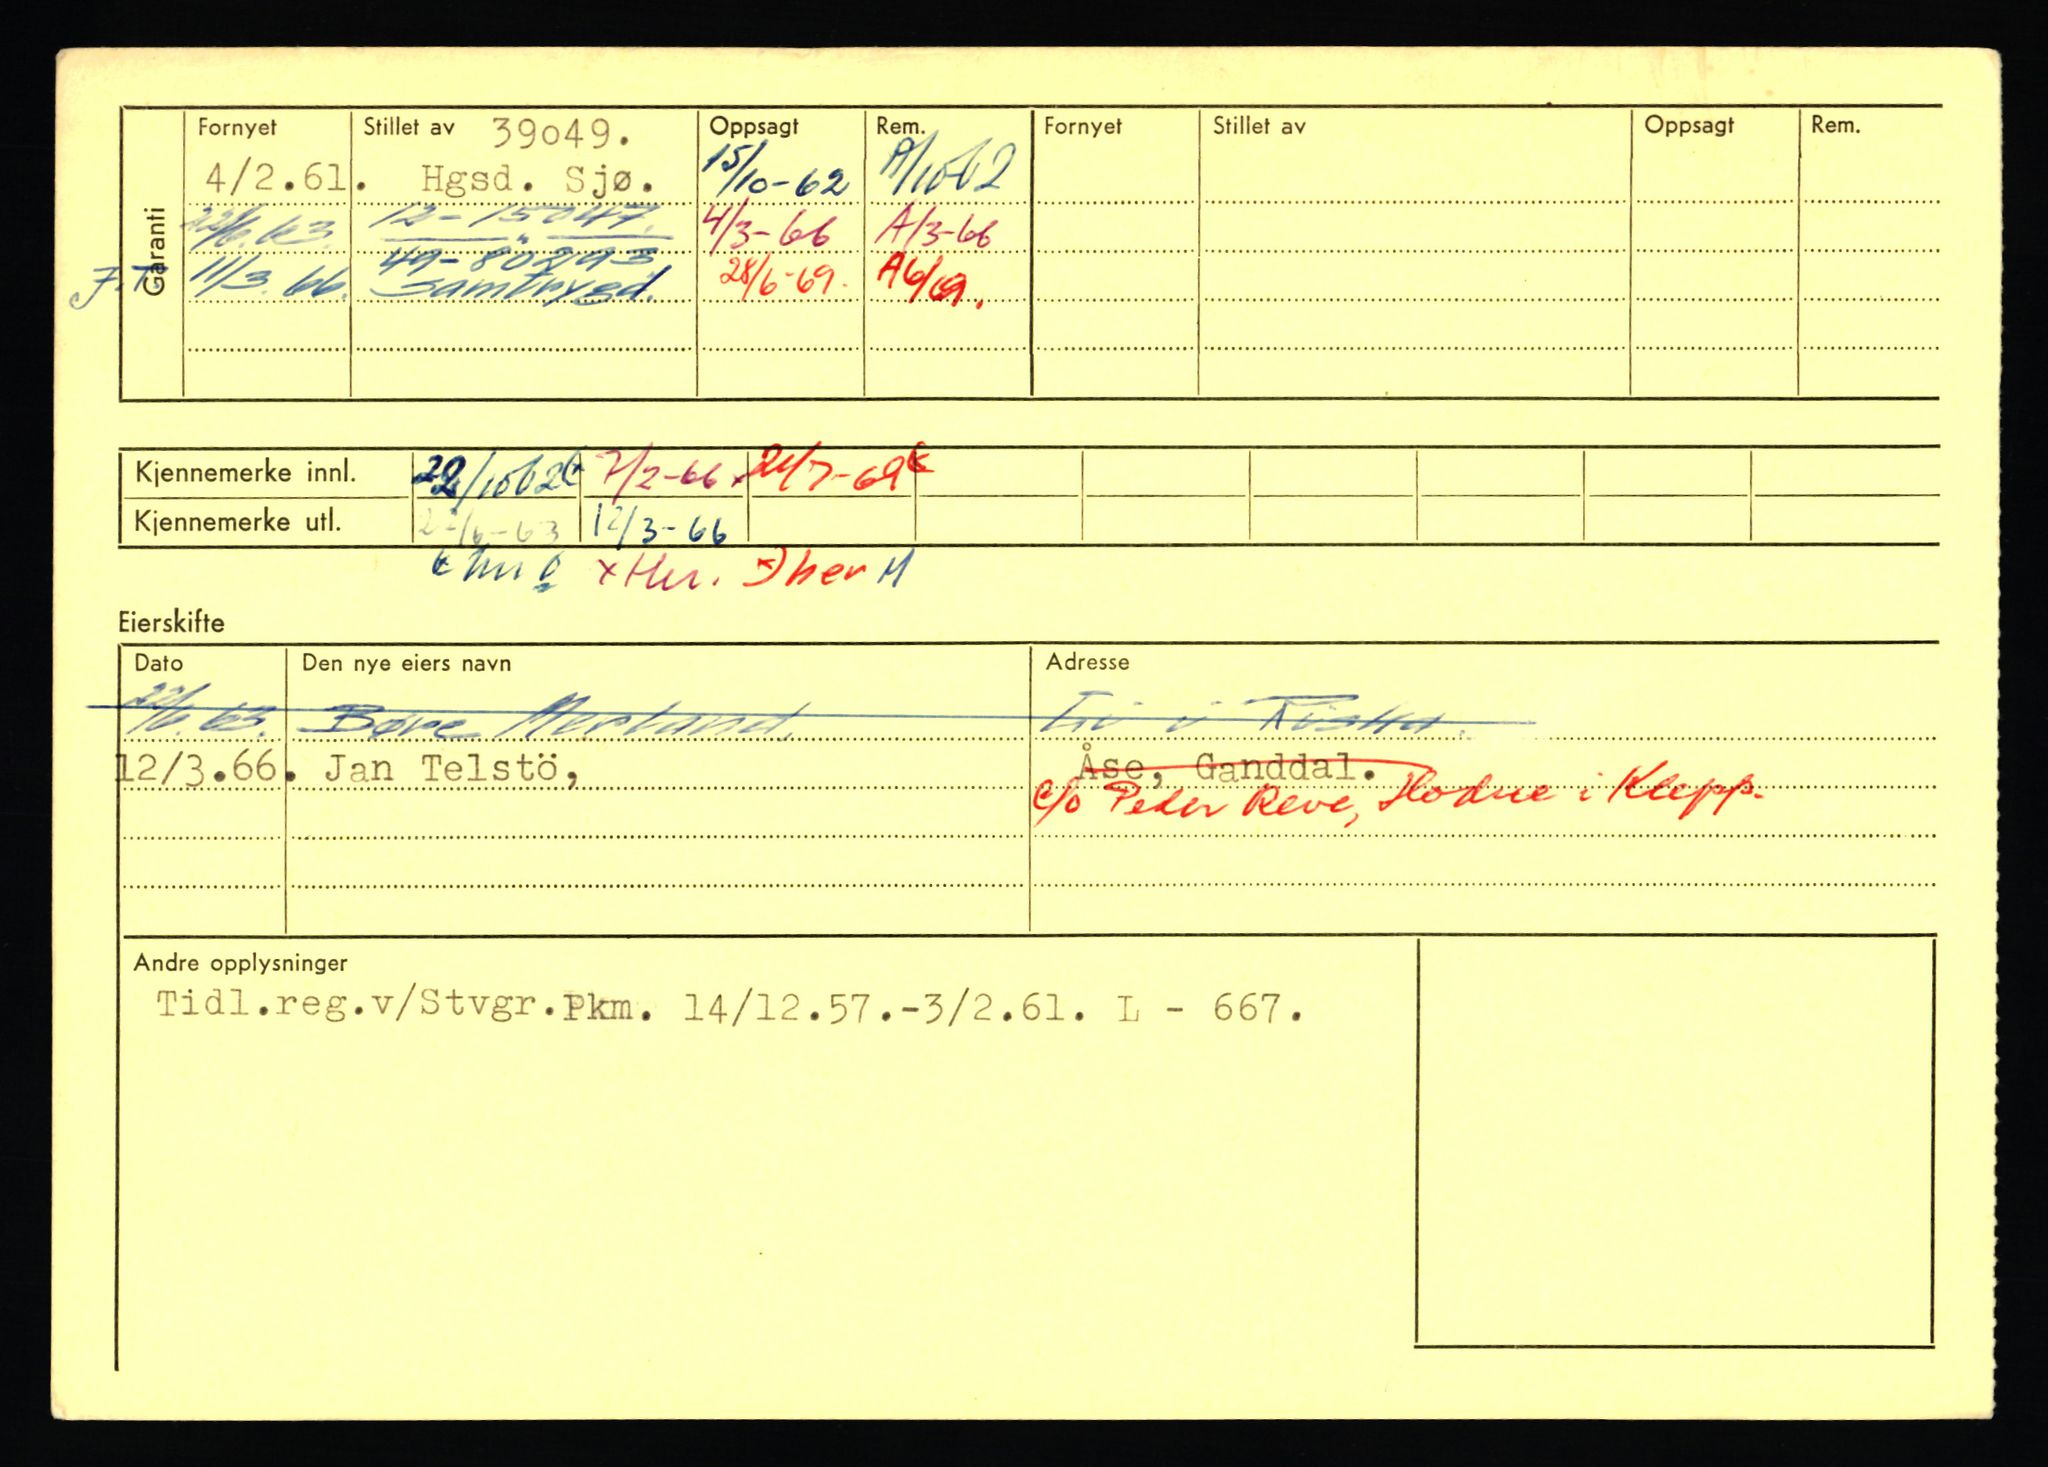 Garanti
Fornyet Stillet av 39o49. Oppsagt Rem. Fornyet Stillet av Oppsagt Rem.
4/2.61. Hgsd. Sjø. 15/10-62 A/1062
22/6.63. 12-15047. 4/3-66 A/3-66
49-80893
J.T. 11/3.66. Samtrygd. 28/6-69. A6/69.
Kjennemerke innl. 22/1062 7/2-66 x 21/7-69
Kjennemerke utl. 22/6-63 12/3-66
x Her. her M
Eierskifte
Dato Den nye eiers navn Adresse
22/6.63. Børe Mesland.
12/3.66. Jan Telstö, Åse, Ganddal.
c/o Peder Reve, Hodne i Klepp.
Andre opplysninger
Tidl.reg.v/Stvgr.Pkm. 14/12.57.-3/2.61. L - 667.